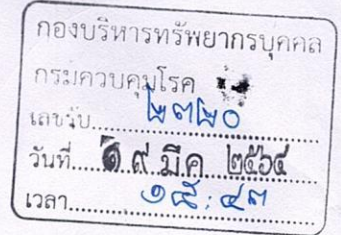 กองบริหารทรัพยากรบุคคล
กรมควบคุมโรค
เลขรับ..........๒๓๒๐
วันที่.....๑ ๙ มี.ค. ๒๕๖๔
เวลา..........๑๕:๔๓